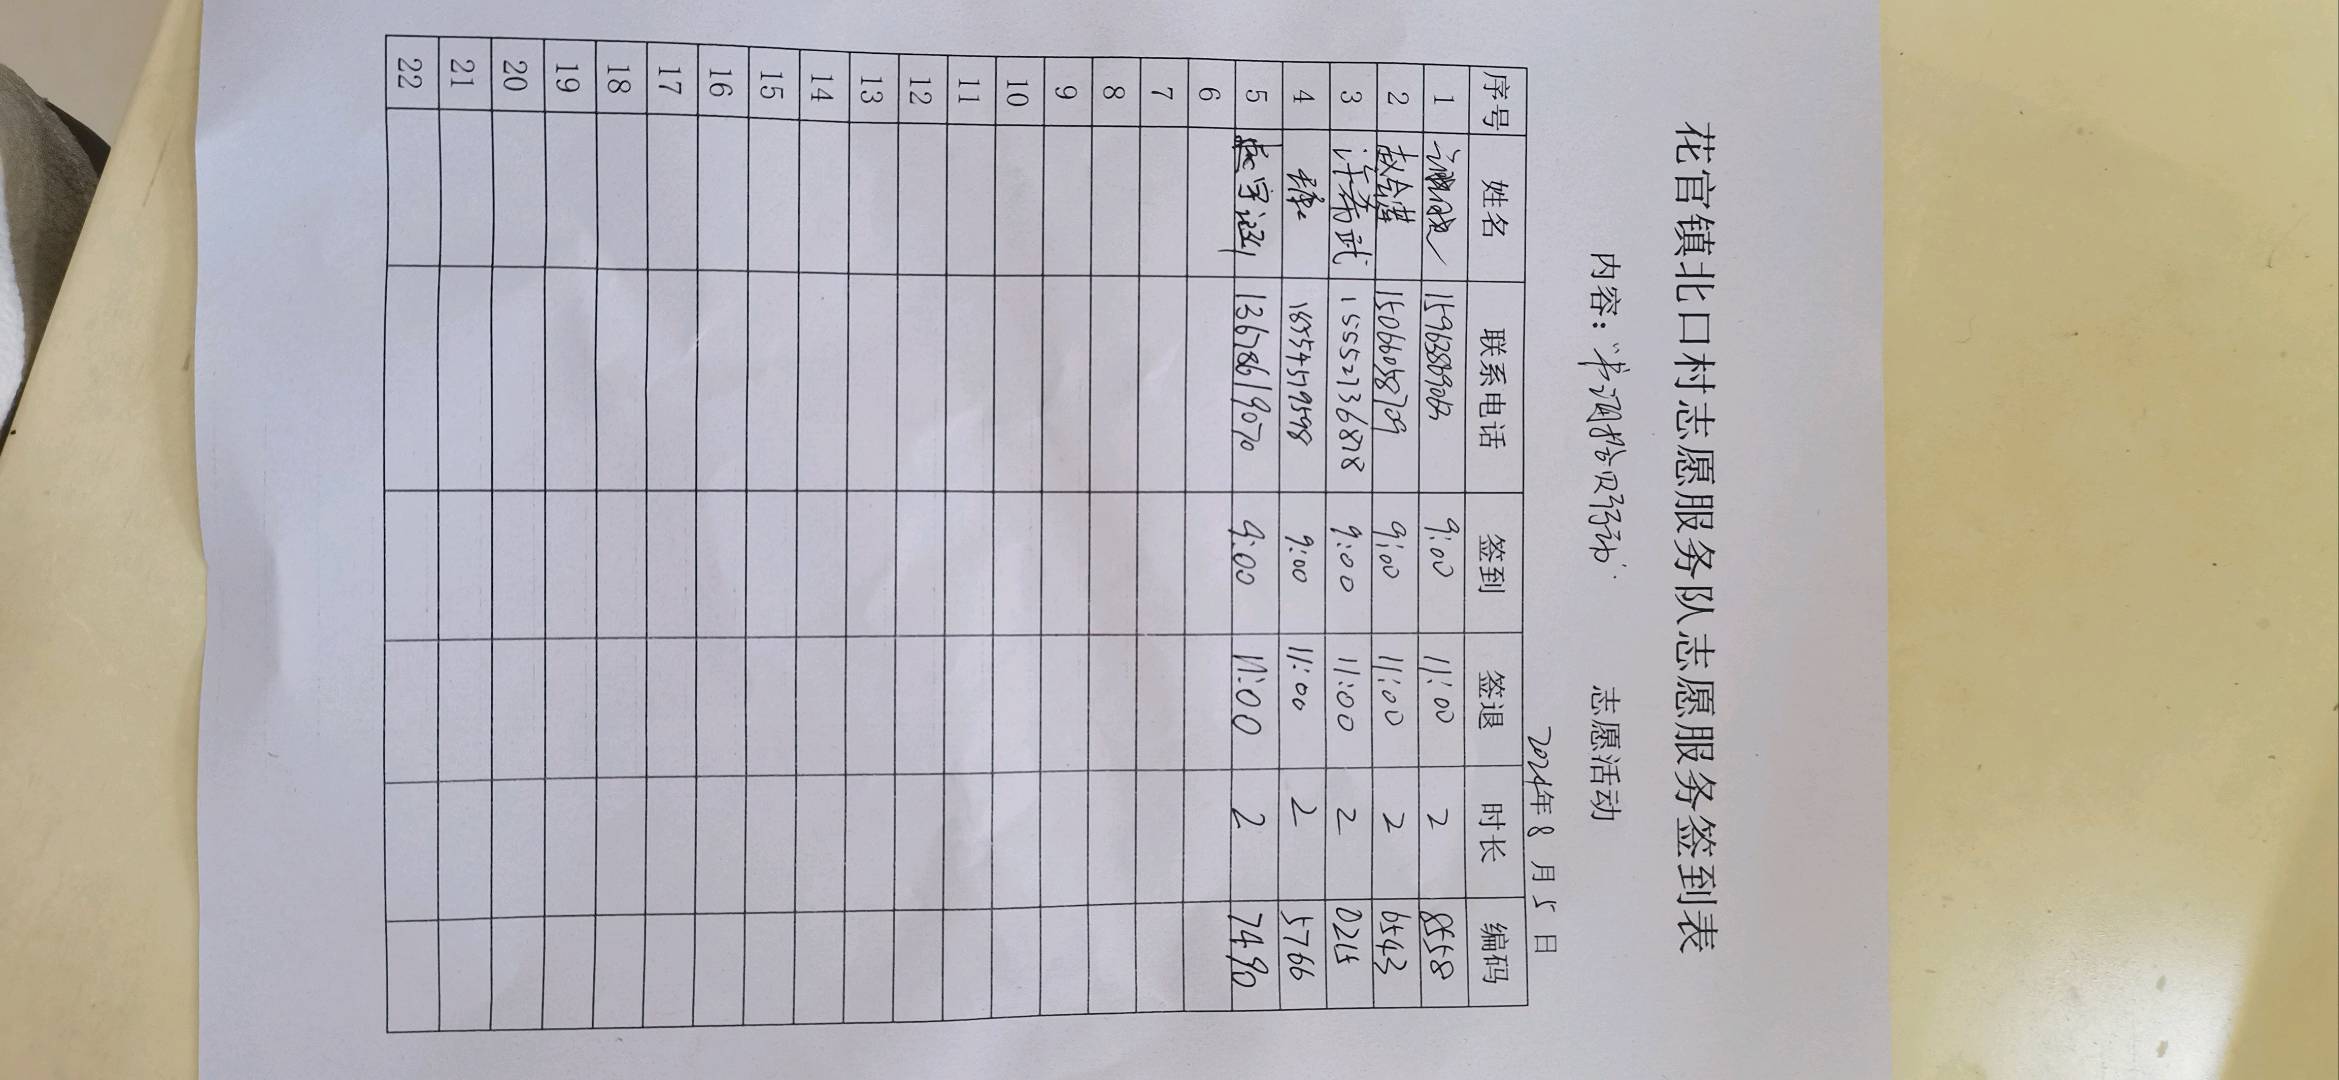 花官镇北口村志愿服务队志愿服务签到表
内容：“书湖拾贝行动” 志愿活动
2024年8月5日
序号 姓名 联系电话 签到 签退 时长 编码
1 15963889063 9:00 11:00 2 8558
2 赵会萍 15066058709 9:00 11:00 2 6543
3 许寿武 15552736878 9:00 11:00 2 0215
4 18554579598 9:00 11:00 2 5766
5 13678619070 9:00 11:00 2 7490
6
7
8
9
10
11
12
13
14
15
16
17
18
19
20
21
22